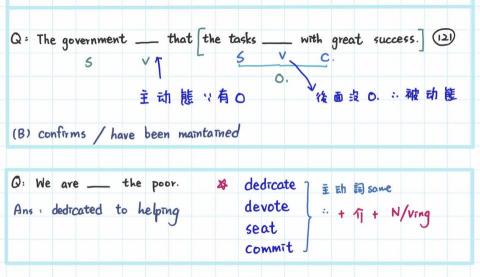 Q: The government ___ that [the tasks ___ with great success.] (121)
S V S V C.
O.
主动態 ∵有O
後面沒O. ∴被动態
(B) confirms / have been maintained
Q: We are ___ the poor.
Ans: dedicated to helping
☆ dedicate
devote
seat
commit
主动詞same
∴ + 介 + N/Ving